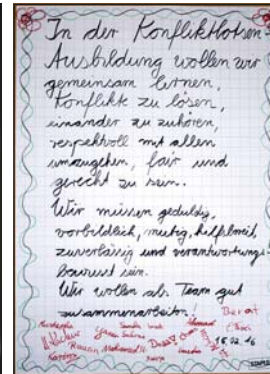 In der Konfliktlotsen-
Ausbildung wollen wir
gemeinsam lernen,
Konflikte zu lösen,
einander zu zuhören,
respektvoll mit allen
umzugehen, fair und
gerecht zu sein.
Wir müssen geduldig,
vorbildlich, mutig, hilfsbereit,
zuverlässig und verantwortungs-
bewusst sein.
Wir wollen als Team gut
zusammenarbeiten.
Berat
Ahmad
Mohamed
18.02.16